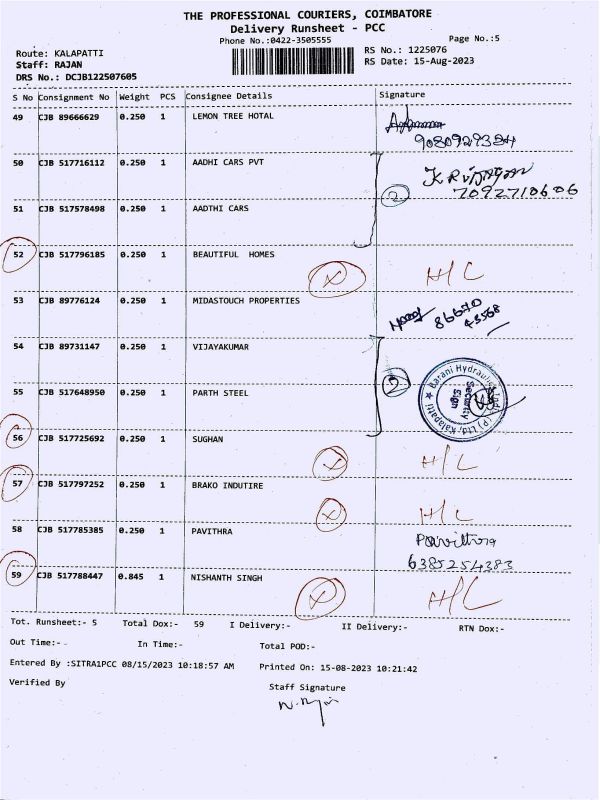 THE PROFESSIONAL COURIERS, COIMBATORE
Delivery Runsheet - PCC
Phone No.:0422-3505555
Page No.:5
Route: KALAPATTI
RS No.: 1225076
Staff: RAJAN
RS Date: 15-Aug-2023
DRS No.: DCJB122507605
S No Consignment No Weight PCS Consignee Details Signature
49 CJB 89666629 0.250 1 LEMON TREE HOTAL
9080929384
50 CJB 517716112 0.250 1 AADHI CARS PVT
7092710606
2
51 CJB 517578498 0.250 1 AADTHI CARS
52 CJB 517796185 0.250 1 BEAUTIFUL HOMES
X H/C
53 CJB 89776124 0.250 1 MIDASTOUCH PROPERTIES
86670
43568
54 CJB 89731147 0.250 1 VIJAYAKUMAR
2
Barani Hydraulics (P) Ltd Kalapatti
Security
Sign
55 CJB 517648950 0.250 1 PARTH STEEL
56 CJB 517725692 0.250 1 SUGHAN
X H/C
57 CJB 517797252 0.250 1 BRAKO INDUTIRE
X H/C
58 CJB 517785385 0.250 1 PAVITHRA
Pavithra
6385254383
59 CJB 517788447 0.845 1 NISHANTH SINGH
X H/C
Tot. Runsheet:- 5 Total Dox:- 59 I Delivery:- II Delivery:- RTN Dox:-
Out Time:- In Time:- Total POD:-
Entered By :SITRA1PCC 08/15/2023 10:18:57 AM Printed On: 15-08-2023 10:21:42
Verified By
Staff Signature